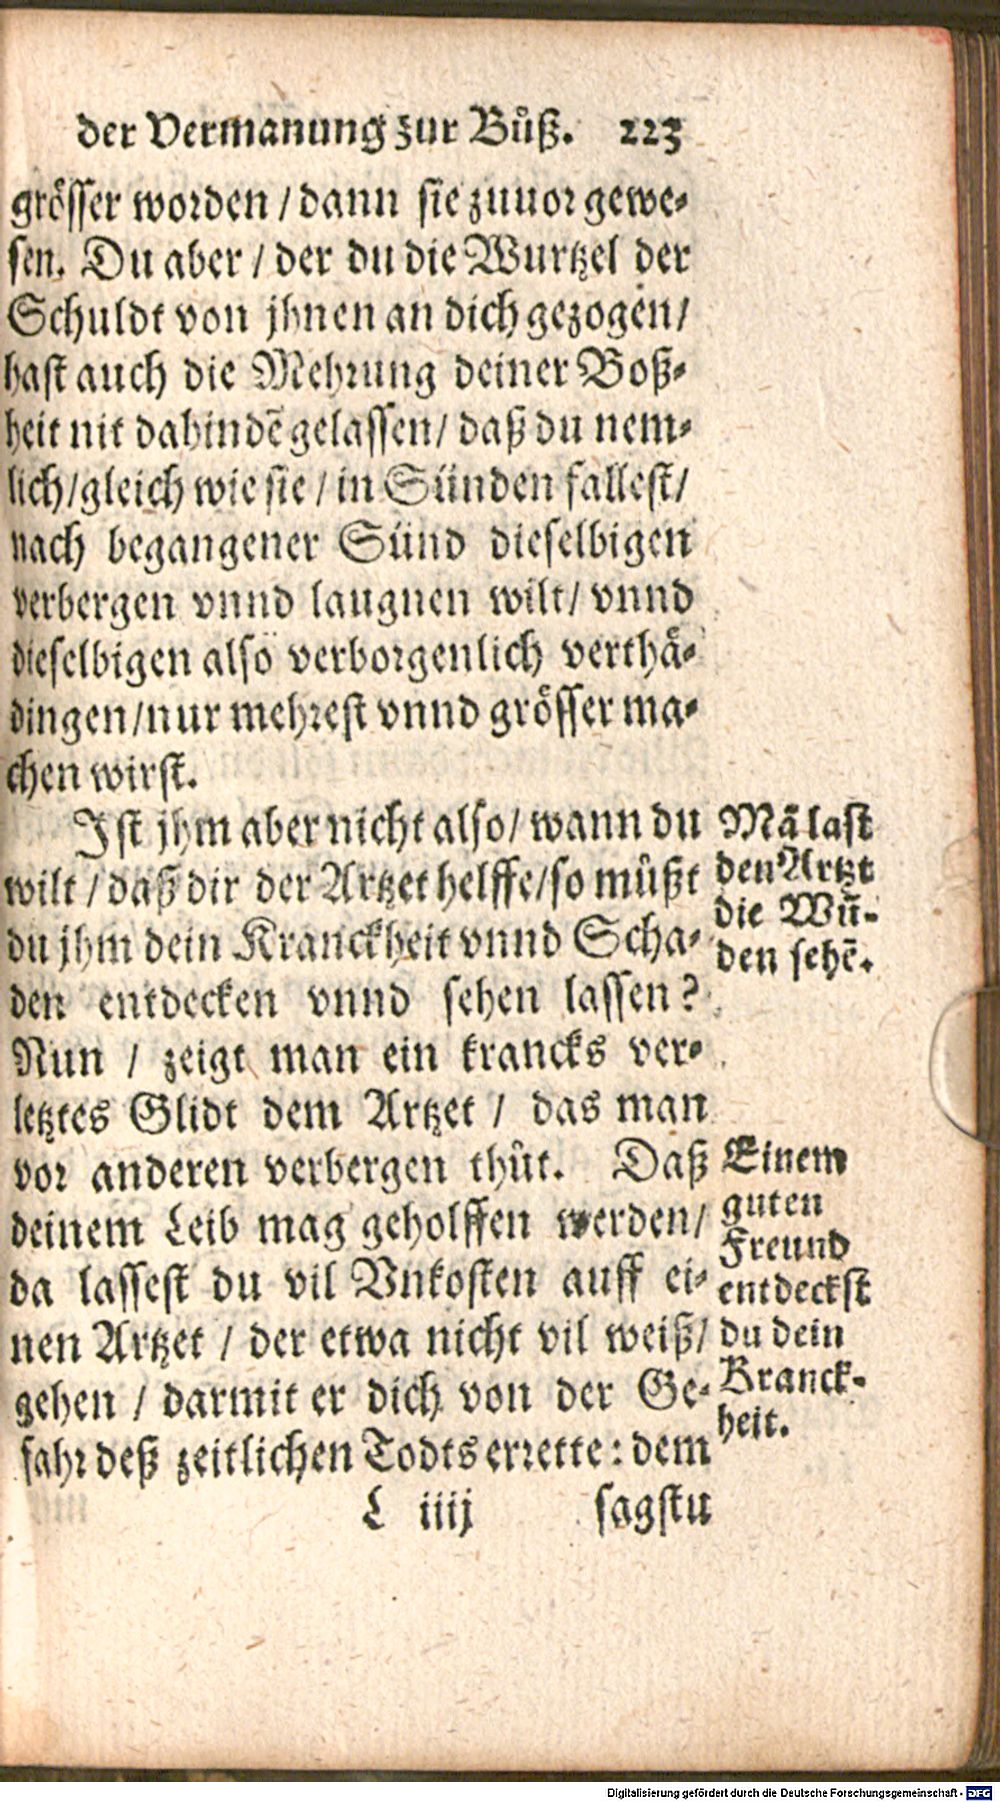 der Vermanung zur Bůß. 223
grösser worden / dann sie zuuor gewe-
sen. Du aber / der du die Wurtzel der
Schuldt von jhnen an dich gezogen /
hast auch die Mehrung deiner Boß-
heit nit dahindẽ gelassen / daß du nem-
lich / gleich wie sie / in Sünden fallest /
nach begangener Sünd dieselbigen
verbergen vnnd laugnen wilt / vnnd
dieselbigen also verborgenlich verthå-
dingen / nur mehrest vnnd grösser ma-
chen wirst.
Ist jhm aber nicht also / wann du
wilt / daß dir der Artzet helffe / so můßt
du jhm dein Kranckheit vnnd Scha-
den entdecken vnnd sehen lassen?
Nun / zeigt man ein krancks ver-
letztes Glidt dem Artzet / das man
vor anderen verbergen thůt. Daß
deinem Leib mag geholffen werden /
da lassest du vil Vnkosten auff ei-
nen Artzet / der etwa nicht vil weiß /
gehen / darmit er dich von der Ge-
fahr deß zeitlichen Todts errette : dem
L iiij sagstu
Mã last
den Artzt
die Wũ-
den sehẽ.
Einem
guten
Freund
entdeckst
du dein
Kranck-
heit.
Digitalisierung gefördert durch die Deutsche Forschungsgemeinschaft - DFG